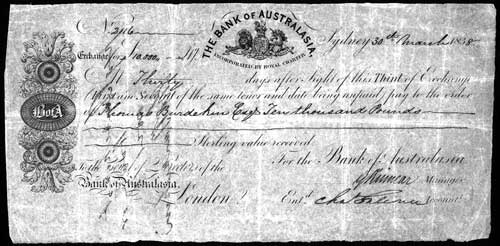 No 246
THE BANK OF AUSTRALASIA,
INCORPORATED BY ROYAL CHARTER
Sydney 30th March 1838
Exchange for £10,000
At Thirty days after Sight of this Third of Exchange
of the same tenor and date being unpaid, pay to the order
of Thomas Burdekin Esqr Ten thousand Pounds
Sterling value received
BofA
To the of the For the Bank of Australasia
Bank of Australasia. Manager
London Entd Accountt